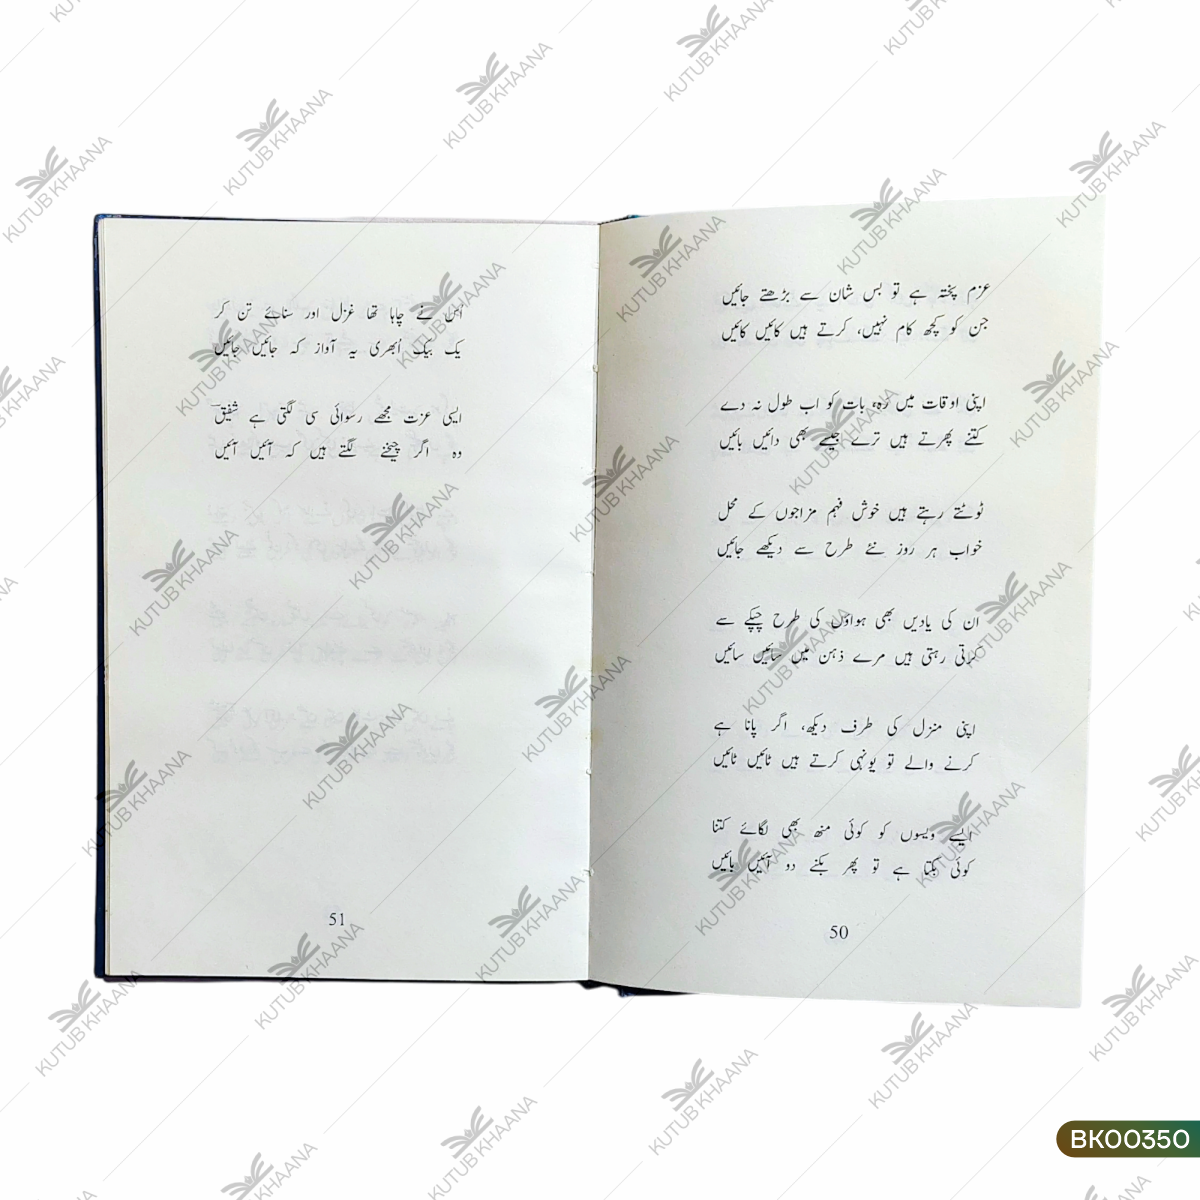 عزم پختہ ہے تو بس شان سے بڑھتے جائیں
جن کو کچھ کام نہیں، کرتے ہیں کائیں کائیں
اپنی اوقات میں رہ، بات کو اب طول نہ دے
کتنے پھرتے ہیں ترے جیسے بھی دائیں بائیں
ٹوٹتے رہتے ہیں خوش فہم مزاجوں کے محل
خواب ہر روز نئے طرح سے دیکھے جائیں
ان کی یادیں بھی ہواؤں کی طرح چپکے سے
کرتی رہتی ہیں مرے ذہن میں سائیں سائیں
اپنی منزل کی طرف دیکھ، اگر پانا ہے
کرنے والے تو یونہی کرتے ہیں ٹائیں ٹائیں
ایسے ویسوں کو کوئی منھ بھی لگائے کتنا
کوئی بکتا ہے تو پھر بکنے دو آئیں بائیں
50
اس نے چاہا تھا غزل اور سنائے تن کر
یک بیک اُبھری یہ آواز کہ جائیں جائیں
ایسی عزت مجھے رسوائی سی لگتی ہے شفیقؔ
وہ اگر چیخنے لگتے ہیں کہ آئیں آئیں
51
KUTUB KHAANA
BK00350